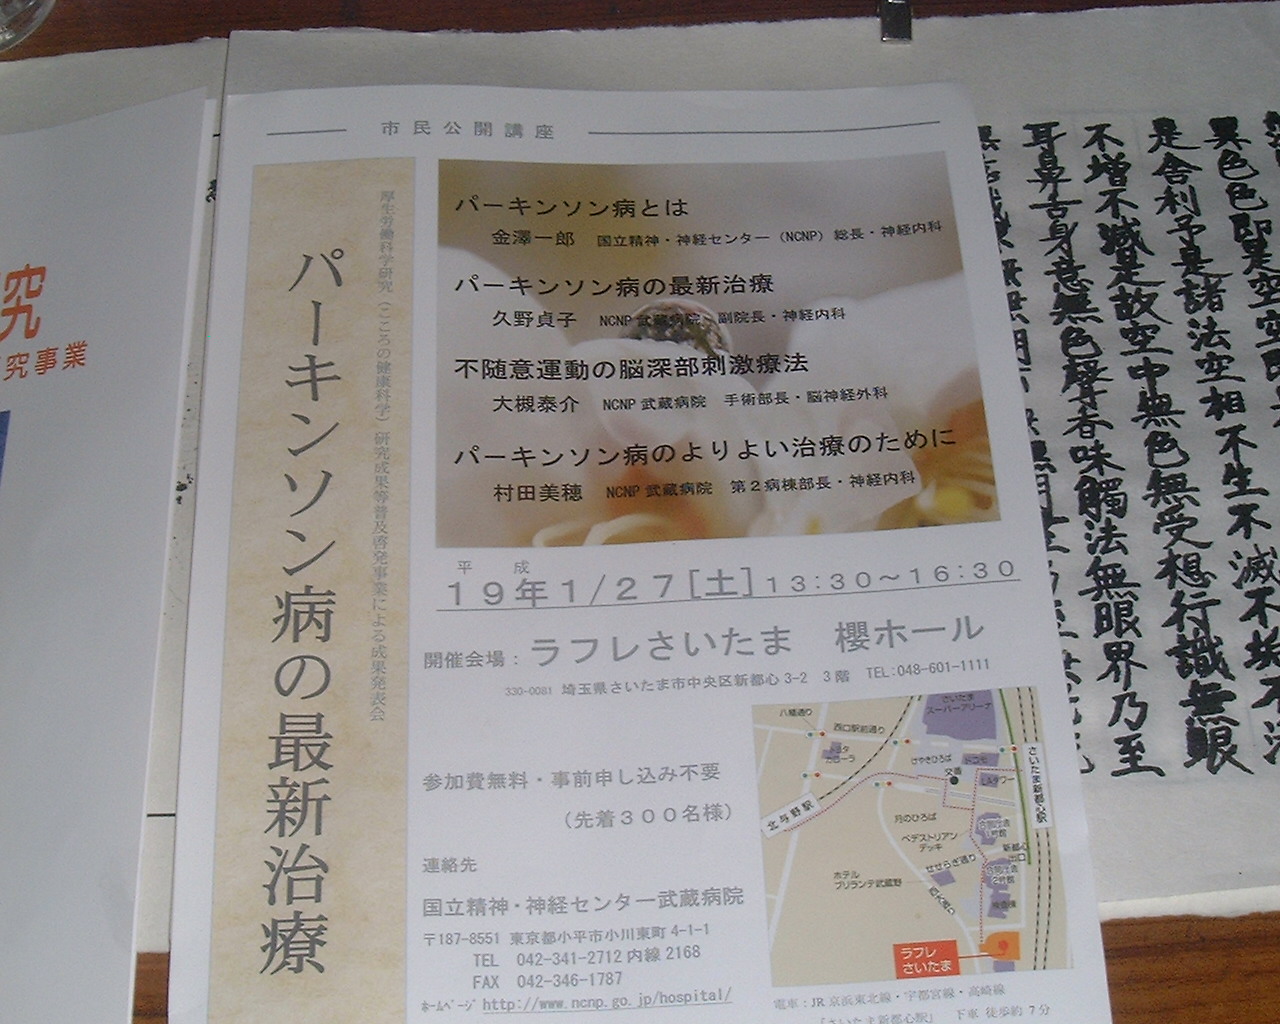 市民公開講座
厚生労働科学研究(こころの健康科学)研究成果等普及啓発事業による成果発表会
パーキンソン病の最新治療
パーキンソン病とは
金澤一郎 国立精神・神経センター (NCNP) 総長・神経内科
パーキンソン病の最新治療
久野貞子 NCNP 武蔵病院 副院長・神経内科
不随意運動の脳深部刺激療法
大槻泰介 NCNP 武蔵病院 手術部長・脳神経外科
パーキンソン病のよりよい治療のために
村田美穂 NCNP 武蔵病院 第2病棟部長・神経内科
平成
19年1/27[土]13:30～16:30
開催会場:ラフレさいたま 櫻ホール
330-0081 埼玉県さいたま市中央区新都心 3-2 3階 TEL:048-601-1111
参加費無料・事前申し込み不要
(先着300名様)
連絡先
国立精神・神経センター武蔵病院
〒187-8551 東京都小平市小川東町 4-1-1
TEL 042-341-2712 内線 2168
FAX 042-346-1787
ﾎｰﾑﾍﾟｰｼﾞ http://www.ncnp.go.jp/hospital/
さいたま
スーパーアリーナ
八幡通り
西口駅前通り
けやきひろば
交番
北与野駅
さいたま新都心駅
月のひろば
ペデストリアン
デッキ
新都心
出口
せせらぎ通り
ホテル
ブリランテ武蔵野
ラフレ
さいたま
電車:JR 京浜東北線・宇都宮線・高崎線
「さいたま新都心駅」 下車 徒歩約 7分
究
究事業
異色色即是空空
是舎利子是諸法空相不生不滅不垢不
不増不減是故空中無色無受想行識無眼
耳鼻舌身意無色聲香味觸法無眼界乃至